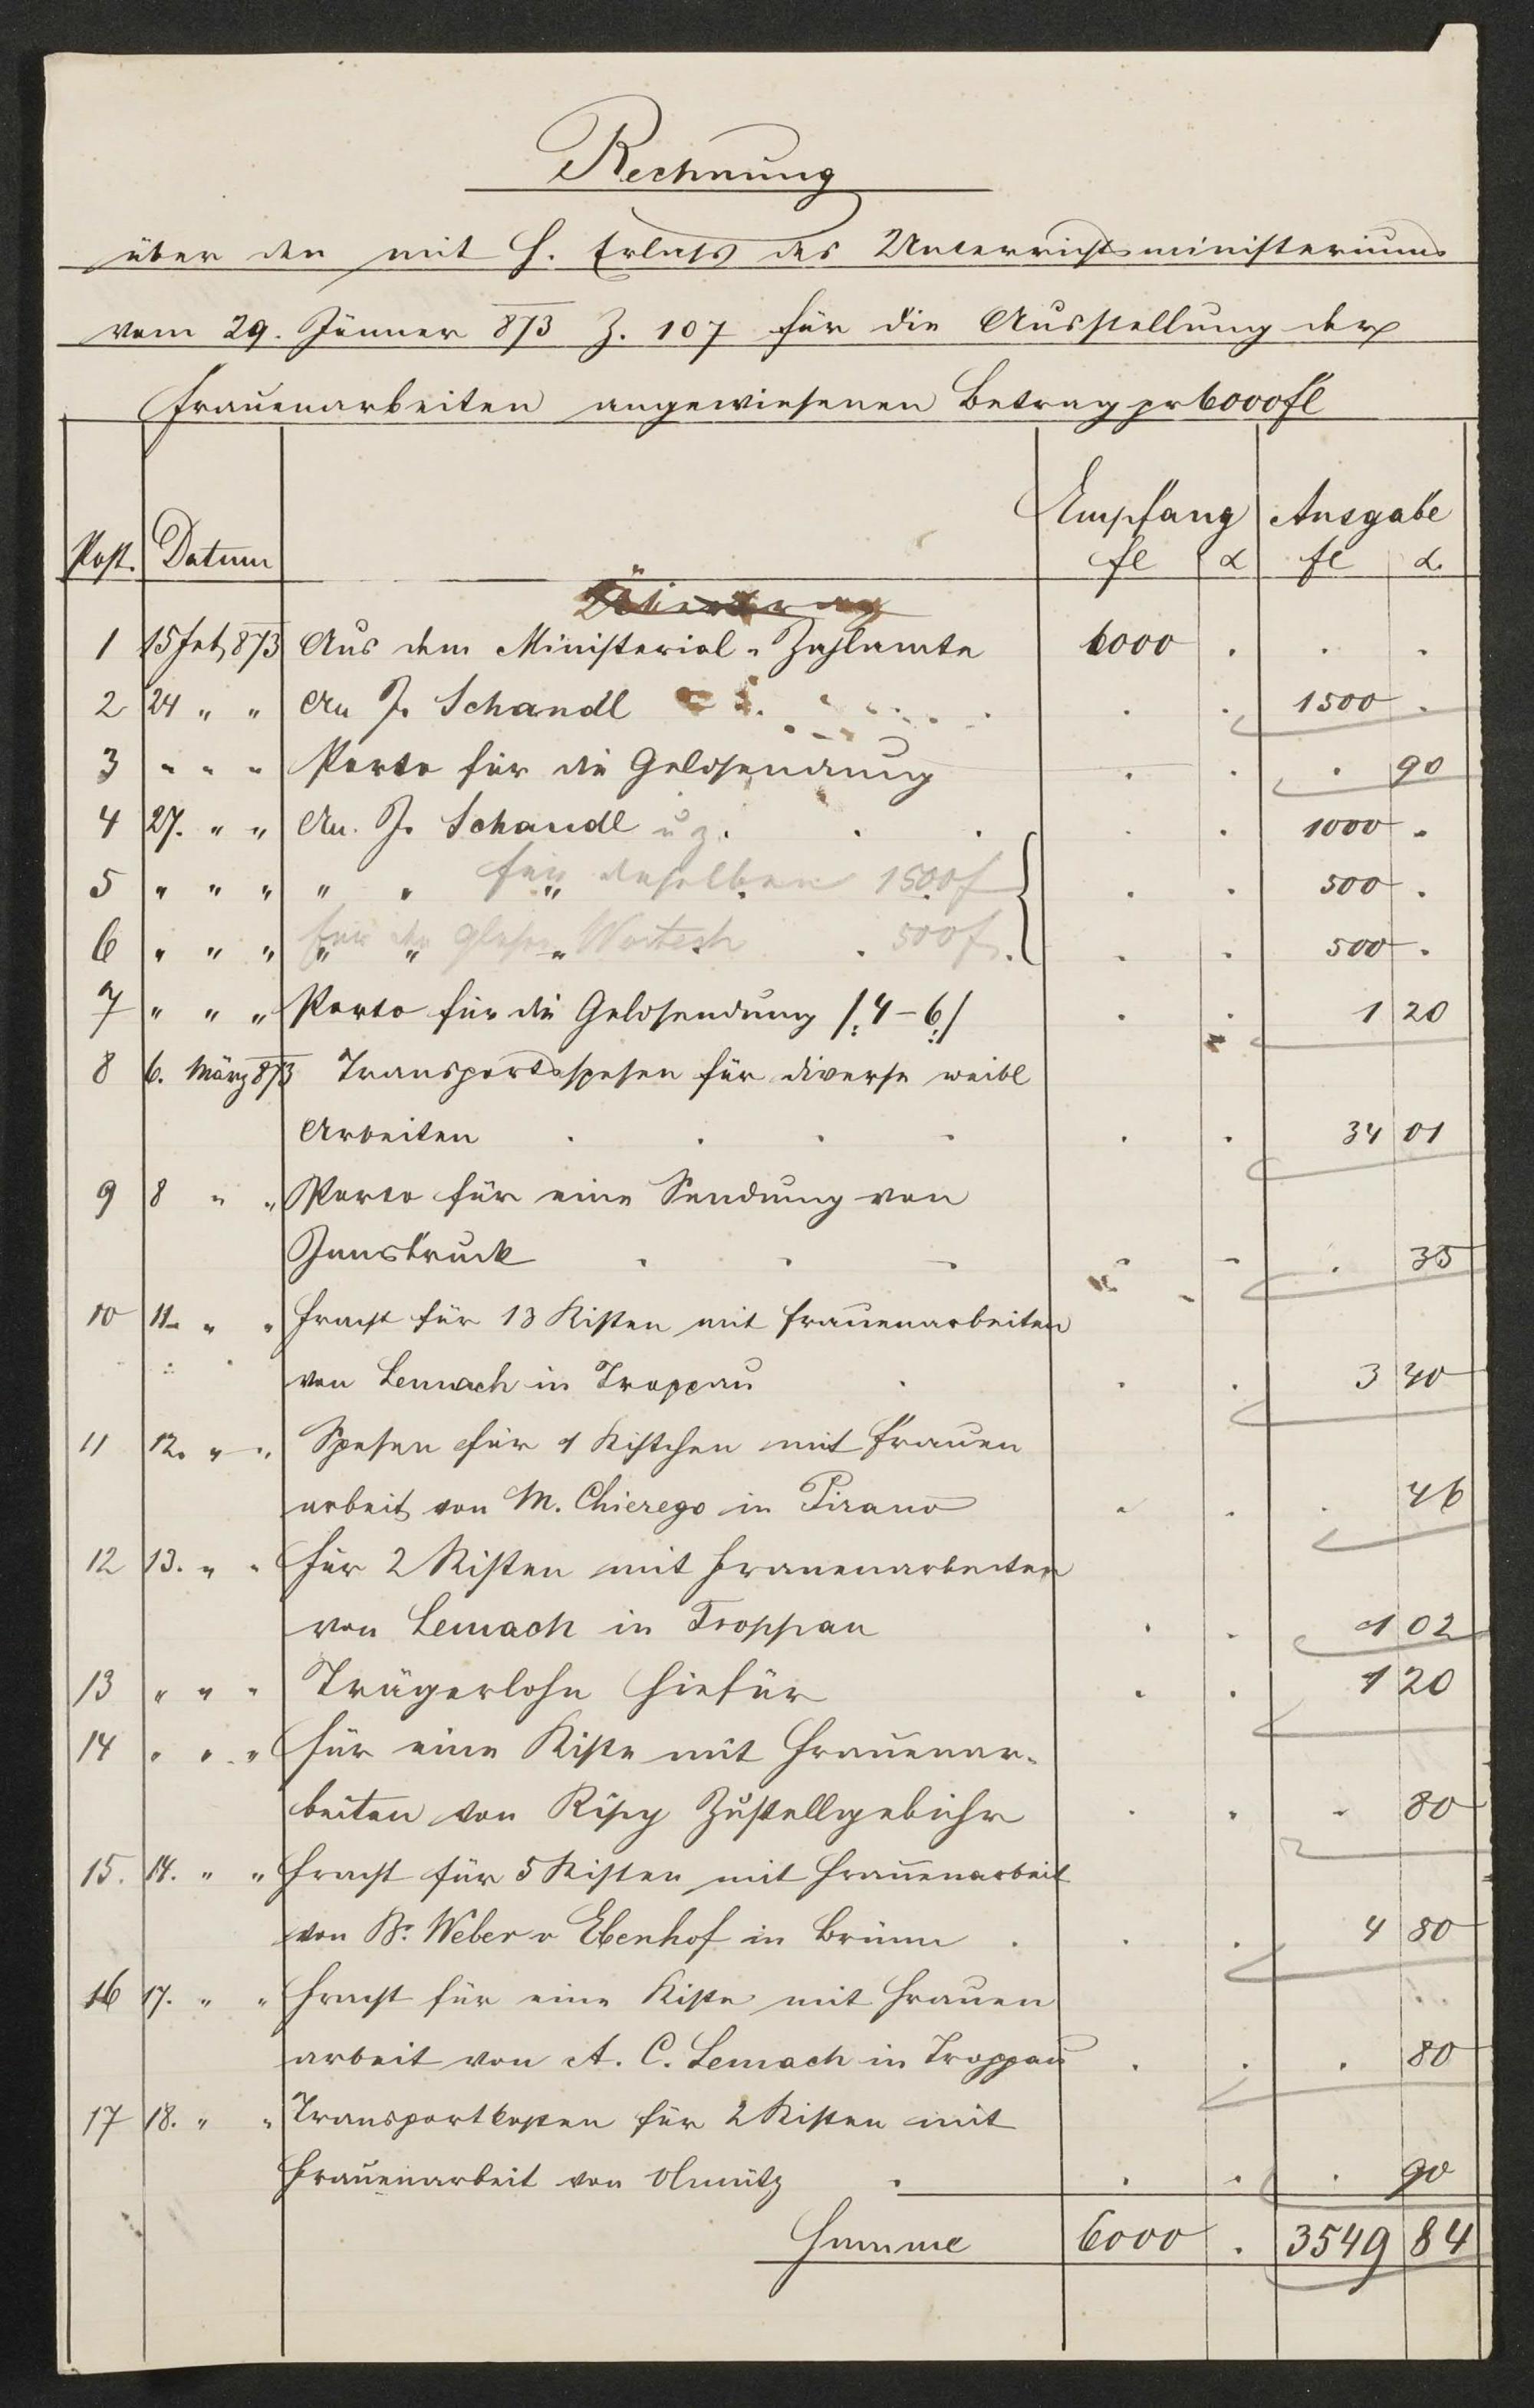 Rechnung
über den mit H. Erlaß des Unterrichtsministeriums
vom 29. Jänner 873 Z. 107 für die Ausstellung der
Frauenarbeiten angewiesenen Betrag pr 6000 fl
Empfang Ausgabe
Post. Datum fl x fl x.
Übertrag
1 15 Feb 873 Aus dem Ministerial-Zahlamte 6000 . . .
2 24 " " An J. Schandl . . 1500 .
3 " " " Porto für die Geldsendung . . . 90
4 27. " " An J. Schandl u z. . . 1000 .
5 " " " " " für denselben 1500 f . . 500 .
6 " " " " " für den Wortech 500 f. . . 500 .
7 " " " Porto für die Geldsendung /: 4-6 :/ . . 1 20
8 6. März 873 Transportsspesen für diverse weibl
Arbeiten . . . . . . 34 01
9 8 " " Porto für eine Sendung von
Innsbruck . . . . . . 35
10 11. " " Fracht für 13 Kisten mit Frauenarbeiten
von Lemach in Troppau . . . 3 40
11 12. " " Spesen für 1 Kistchen mit Frauen
arbeit von M. Chierego in Pirano . . . 46
12 13. " " Für 2 Kisten mit Frauenarbeiten
von Lemach in Troppau . . 1 02
13 " " " Trägerlohn hiefür . . 1 20
14 " " " Für eine Kiste mit Frauenar-
beiten von Zustellgebühr . . . 80
15. 14. " " Fracht für 5 Kisten mit Frauenarbeit
von Br. Weber v Ebenhof in Brünn . . . 4 80
16 17. " " Fracht für eine Kiste mit Frauen
arbeit von A. C. Lemach in Troppau . . . 80
17 18. " " Transportkosten für 2 Kisten mit
Frauenarbeit von Olmütz . . . . 90
Summe 6000 . 3549 84